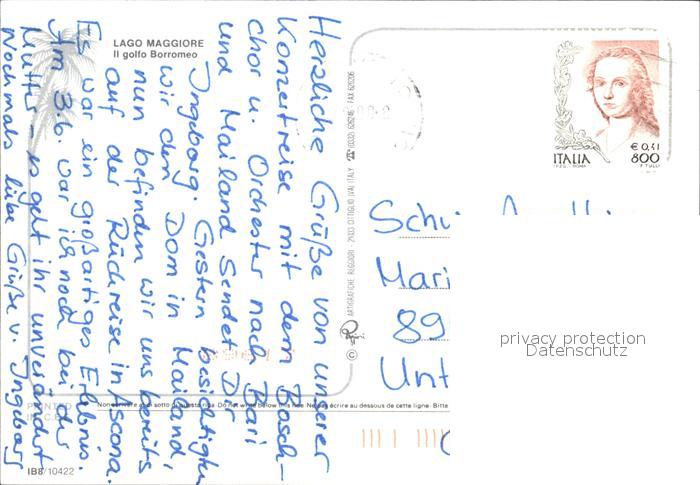 LAGO MAGGIORE
Il golfo Borromeo
Herzliche Grüße von unserer
Konzertreise mit dem Bosch-
chor u. Orchester nach Bari
und Mailand sendet Dir
Ingeborg. Gestern besichtigten
wir den Dom in Mailand,
nun befinden wir uns bereits
auf der Rückreise in Ascona.
Es war ein großartiges Erlebnis.
Am 3.6. war ich noch bei Ihr
Mutter - es geht ihr unverändert
Nochmals liebe Grüße v. Ingeborg
PRINTED
IB8/10422
© ARTIGRAFICHE REGGIORI - 21033 CITTIGLIO (VA) ITALY ☎ (0332) 626245 - FAX 626206
Non scrivere sotto questa riga Do not write below this line Ne pas écrire au dessous de cette ligne Bitte
ITALIA
€ 0,41
800
Schw
Mari
89
Unt
privacy protection
Datenschutz